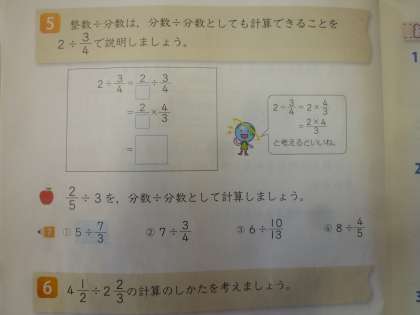 5 整数÷分数は、分数÷分数としても計算できることを
2÷3/4で説明しましょう。
2÷3/4=2/□÷3/4
=2/□×4/3
=□
2÷3/4=2×4/3
=2×4/3
と考えるといいね。
2/5÷3を、分数÷分数として計算しましょう。
7 ① 5÷7/3 ② 7÷3/4 ③ 6÷10/13 ④ 8÷4/5
6 4 1/2÷2 2/3の計算のしかたを考えましょう。
1
2
3